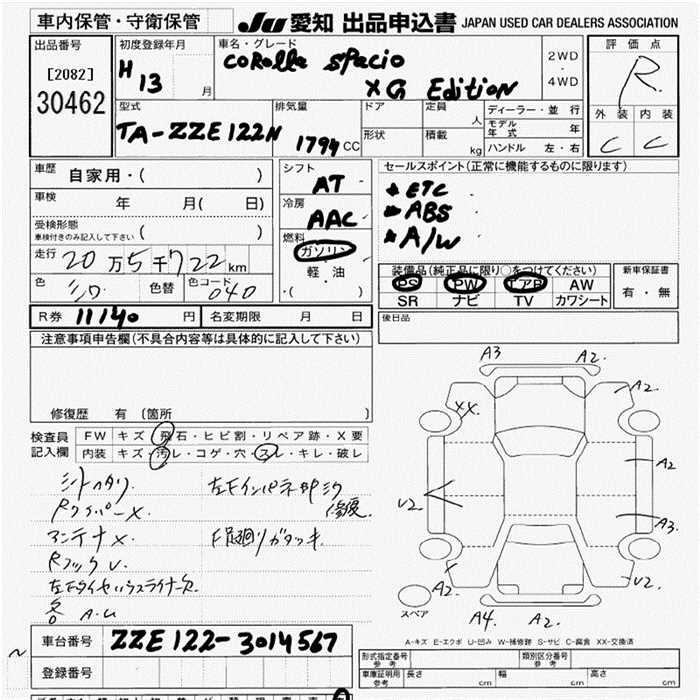 車内保管・守衛保管 JU 愛知 出品申込書 JAPAN USED CAR DEALERS ASSOCIATION
出品番号 初度登録年月 車名・グレード 評価点
[2082] H 13 月 COROLLA SPACIO 2WD R.
30462 XG Edition 4WD
型式 排気量 ドア 定員 人 ディーラー・並行 外装 内装
TA-ZZE122N 1794 CC 形状 積載 kg モデル年式 年 C C
ハンドル 左・右
車歴 自家用・( ) シフト AT セールスポイント(正常に機能するものに限ります)
車検 年 月( 日) 冷房 AAC * ETC
受検形態 * ABS
車検付きのみ記入して下さい ( ) 燃料 * A/W
走行 20万5千722km ガソリン
色 シロ 色替 色コード 040 軽・油
・( )
装備品(純正品に限り○をつけてください) 新車保証書
PS PW エアB AW 有・無
SR ナビ TV カワシート
R券 11140 円 名変期限 月 日 後日品
注意事項申告欄(不具合内容等は具体的に記入して下さい)
修復歴 有 (箇所 )
検査員 FW キズ・飛石・ヒビ割・リペア跡・X要
記入欄 内装 キズ・汚レ・コゲ・穴・スレ・キレ・破レ
シートヘタリ 左下インパネ部シワ
RワイパーX. 修復
アンテナX. F足廻りガタツキ.
RフックU.
左右タイヤハウスライナー欠
各 A.U
A3 A2.
A2.
XX.
A2
U2
A3.
A2. U2.
スペア A4. A2.
A-キズ E-エクボ U-凹み W-補修跡 S-サビ C-腐食 XX-交換済
車台番号 ZZE122-3014567
登録番号
形式指定番号 参考 類別区分番号 参考
車庫証明用 参考 長さ cm 幅 cm 高さ cm